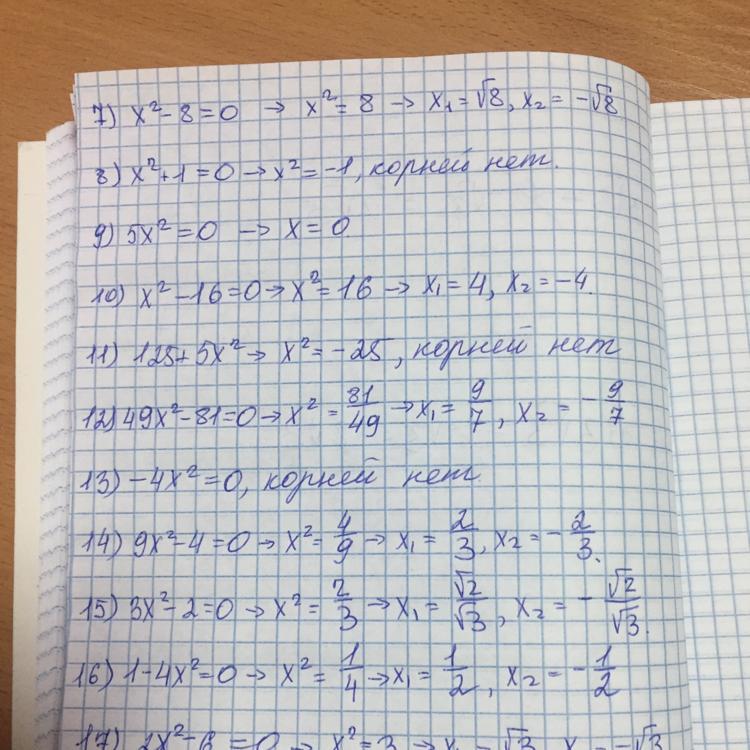 7) x² - 8 = 0 → x² = 8 → x₁ = √8, x₂ = -√8
8) x² + 1 = 0 → x² = -1, корней нет.
9) 5x² = 0 → x = 0
10) x² - 16 = 0 → x² = 16 → x₁ = 4, x₂ = -4.
11) 125 + 5x² → x² = -25, корней нет
12) 49x² - 81 = 0 → x² = 81/49 → x₁ = 9/7, x₂ = -9/7
13) -4x² = 0, корней нет.
14) 9x² - 4 = 0 → x² = 4/9 → x₁ = 2/3, x₂ = -2/3.
15) 3x² - 2 = 0 → x² = 2/3 → x₁ = √2/√3, x₂ = -√2/√3.
16) 1 - 4x² = 0 → x² = 1/4 → x₁ = 1/2, x₂ = -1/2
17) 2x² - 6 = 0 → x² = 3 → x₁ = √3, x₂ = -√3